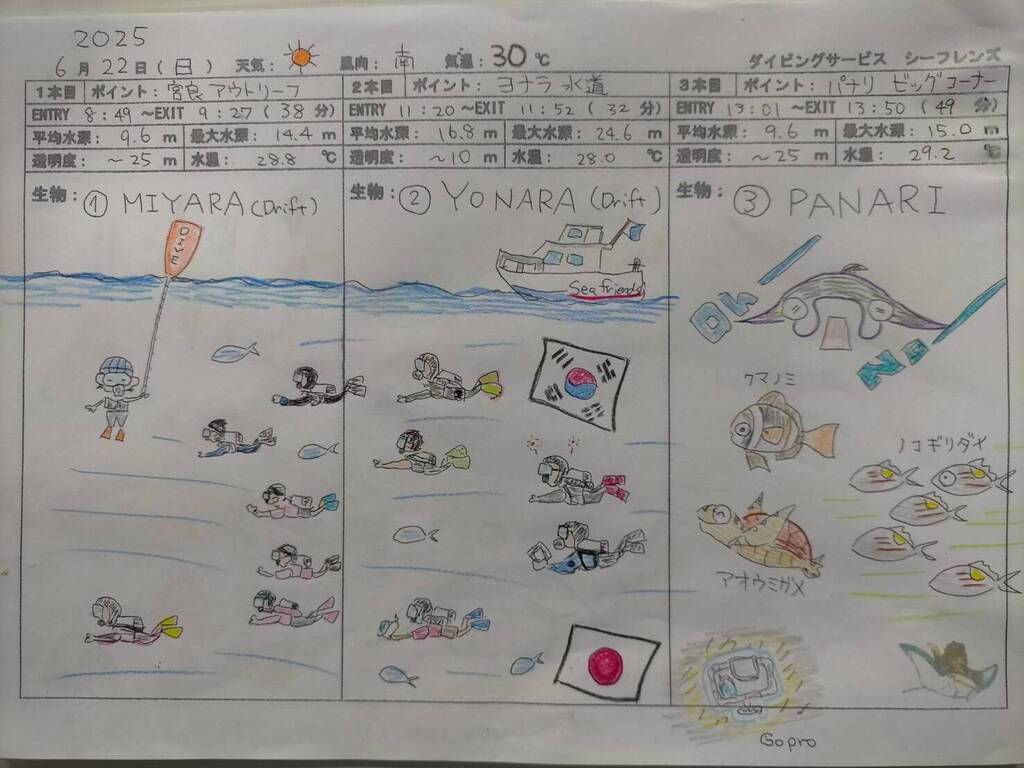 2025
6月22日(日) 天気: 風向: 南 気温: 30℃ ダイビングサービス シーフレンズ
1本目 ポイント: 宮良アウトリーフ
ENTRY 8:49 ~EXIT 9:27 (38 分)
平均水深: 9.6 m 最大水深: 14.4 m
透明度: ~25 m 水温: 28.8 ℃
生物: ① MIYARA (Drift)
DIVE
2本目 ポイント: ヨナラ水道
ENTRY 11:20 ~EXIT 11:52 (32 分)
平均水深: 16.8 m 最大水深: 24.6 m
透明度: ~10 m 水温: 28.0 ℃
生物: ② YONARA (Drift)
Seafriends
3本目 ポイント: パナリ ビッグコーナー
ENTRY 13:01 ~EXIT 13:50 (49 分)
平均水深: 9.6 m 最大水深: 15.0 m
透明度: ~25 m 水温: 29.2 ℃
生物: ③ PANARI
Oh
No
クマノミ
ノコギリダイ
アオウミガメ
Gopro